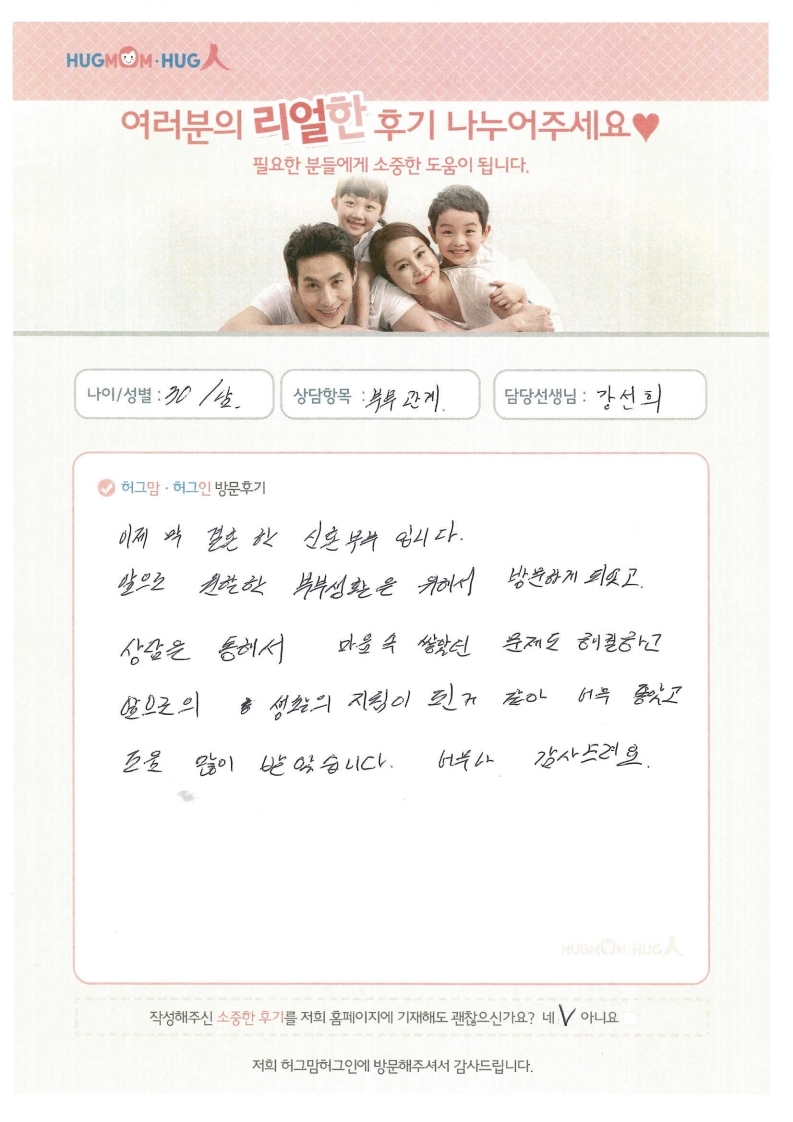 HUGMOM·HUG人
여러분의 리얼한 후기 나누어주세요♥
필요한 분들에게 소중한 도움이 됩니다.
나이/성별 : 30 / 남.
상담항목 : 부부관계.
담당선생님 : 강선희
허그맘·허그인 방문후기
이제 막 결혼 한 신혼부부 입니다.
앞으로 원활한 부부생활은 위해서 방문하게 되었고.
상담은 통해서 마음속 쌓았던 문제도 해결하고
앞으로의 생활의 지침이 된거 같아 너무 좋았고
도움 많이 받았습니다. 너무나 감사드려요.
작성해주신 소중한 후기를 저희 홈페이지에 기재해도 괜찮으신가요? 네 V 아니요
저희 허그맘허그인에 방문해주셔서 감사드립니다.